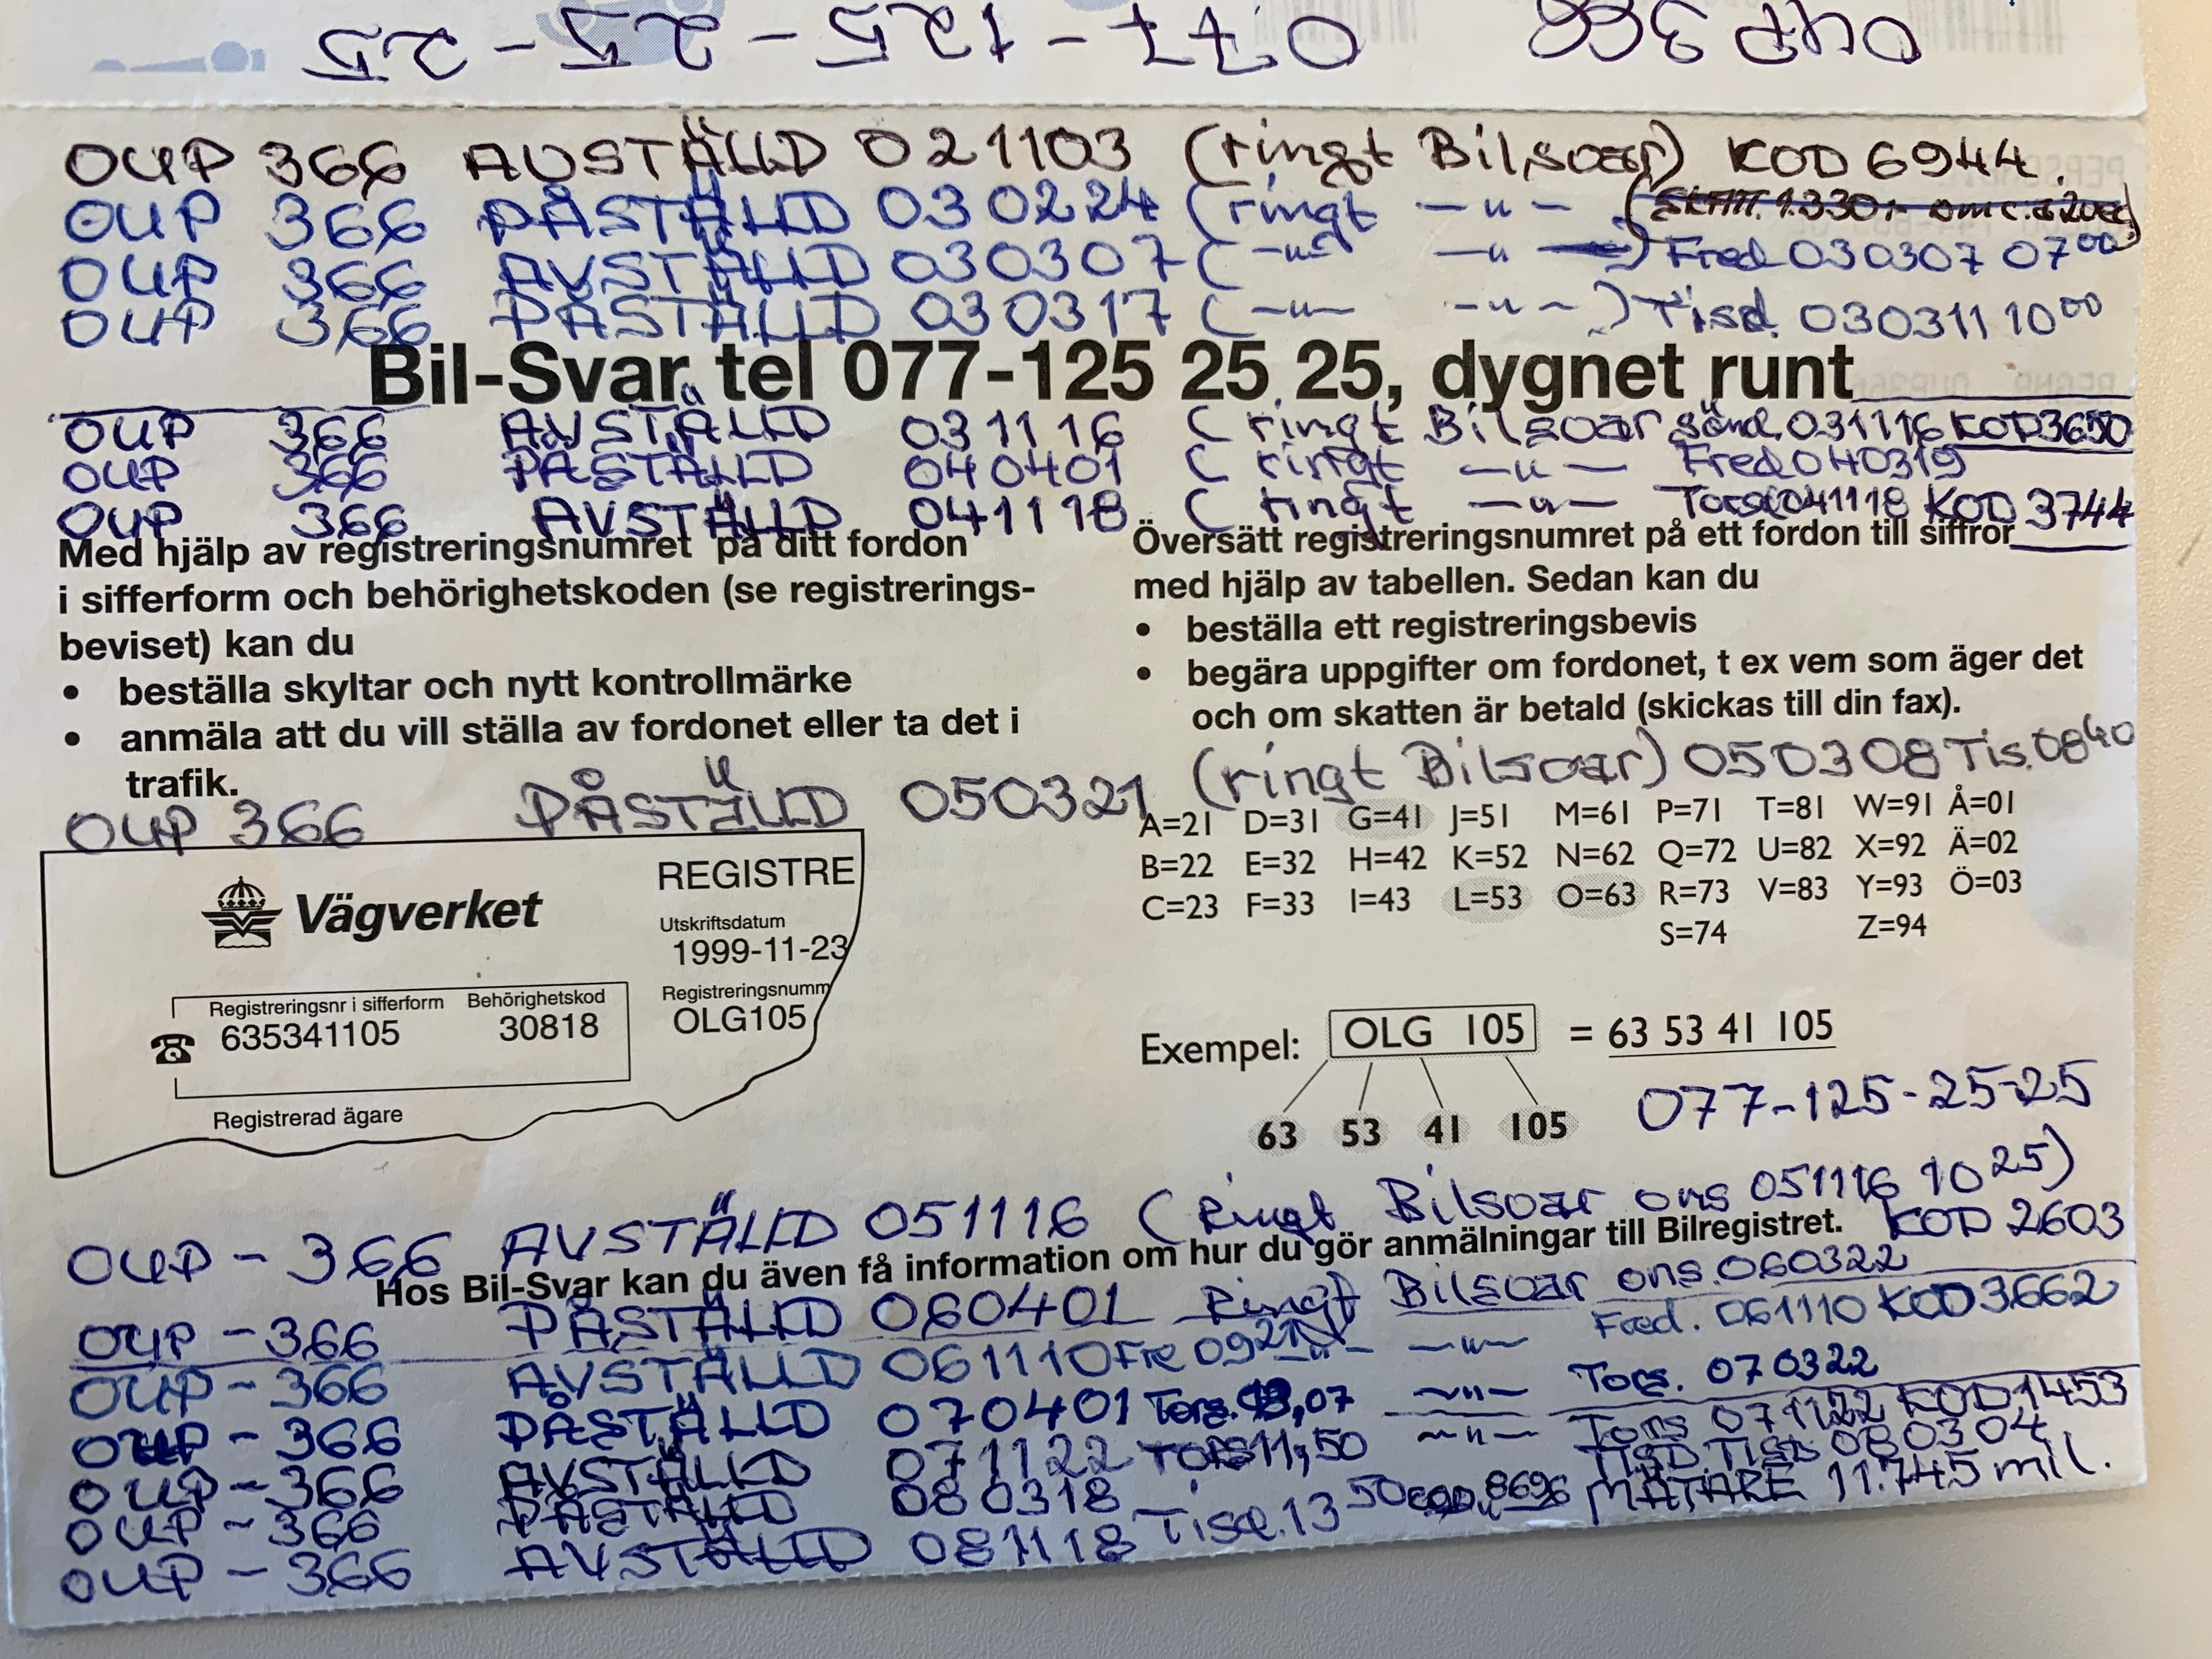 OUP 366 077-125-25-25
OUP 366 AVSTÄLLD 021103 (ringt Bilsvar) KOD 6944.
OUP 366 PÅSTÄLLD 030224 (ringt —"— )
OUP 366 AVSTÄLLD 030307 (—"— —"—) Fred 030307 07⁰⁰
OUP 366 PÅSTÄLLD 030317 (—"— —"—) Tisd. 030311 10⁰⁰
Bil-Svar tel 077-125 25 25, dygnet runt
OUP 366 AVSTÄLLD 031116 (ringt Bilsvar sönd. 031116 KOD 3650
OUP 366 PÅSTÄLLD 040401 (ringt —"— Fred 040319
OUP 366 AVSTÄLLD 041118 (ringt —"— Torsd 041118 KOD 3744
Med hjälp av registreringsnumret på ditt fordon
i sifferform och behörighetskoden (se registrerings-
beviset) kan du
• beställa skyltar och nytt kontrollmärke
• anmäla att du vill ställa av fordonet eller ta det i
trafik.
Översätt registreringsnumret på ett fordon till siffror
med hjälp av tabellen. Sedan kan du
• beställa ett registreringsbevis
• begära uppgifter om fordonet, t ex vem som äger det
och om skatten är betald (skickas till din fax).
OUP 366 PÅSTÄLLD 050321 (ringt Bilsvar) 050308 Tis. 08⁴⁰
A=21 D=31 G=41 J=51 M=61 P=71 T=81 W=91 Å=01
B=22 E=32 H=42 K=52 N=62 Q=72 U=82 X=92 Ä=02
C=23 F=33 I=43 L=53 O=63 R=73 V=83 Y=93 Ö=03
S=74 Z=94
Vägverket
REGISTRE
Utskriftsdatum
1999-11-23
Registreringsnr i sifferform Behörighetskod
635341105 30818
Registreringsnumm
OLG105
Registrerad ägare
Exempel: OLG 105 = 63 53 41 105
63 53 41 105
077-125-25-25
OUP - 366 AVSTÄLLD 051116 (Ringt Bilsvar ons 051116 10²⁵)
KOD 2603
Hos Bil-Svar kan du även få information om hur du gör anmälningar till Bilregistret.
OUP - 366 PÅSTÄLLD 060401 Ringt Bilsvar ons. 060322
OUP - 366 AVSTÄLLD 061110 Fre 09²¹ —"— —"— Fred. 061110 KOD 3662
OUP - 366 PÅSTÄLLD 070401 Tors. ,07 —"— Tors. 070322
OUP - 366 AVSTÄLLD 071122 TORS 11,50 —"— Tors 071122 KOD 1453
OUP - 366 PÅSTÄLLD 080318 TISD. Tisd 080304
OUP - 366 AVSTÄLLD 081118 Tisd. 13⁵⁰ 8696 MÄTARE 11.745 mil.